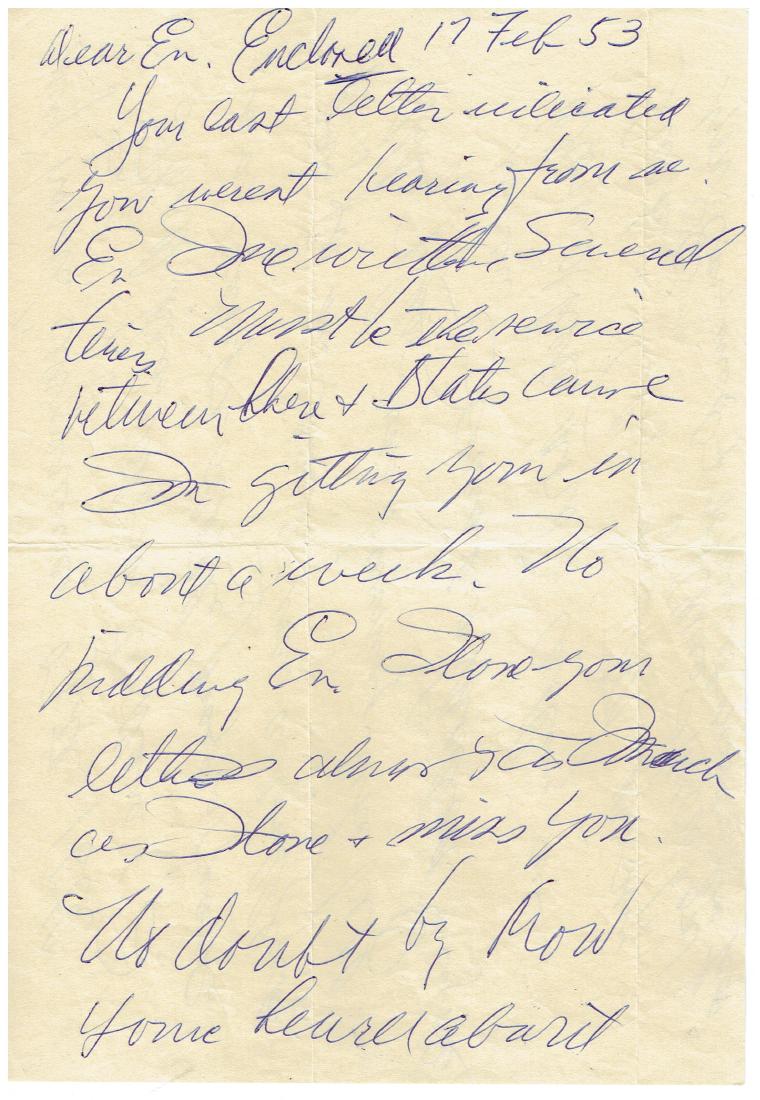 Dear En. Enclosed 17 Feb 53
Your last letter indicated
you werent hearing from me.
En Ive written Several
times Must be the service
between here + States cause
Im gitting your in
about a week. No
kidding En. I love your
letters almost as much
as I love + miss you.
No doubt by now
youve heard about